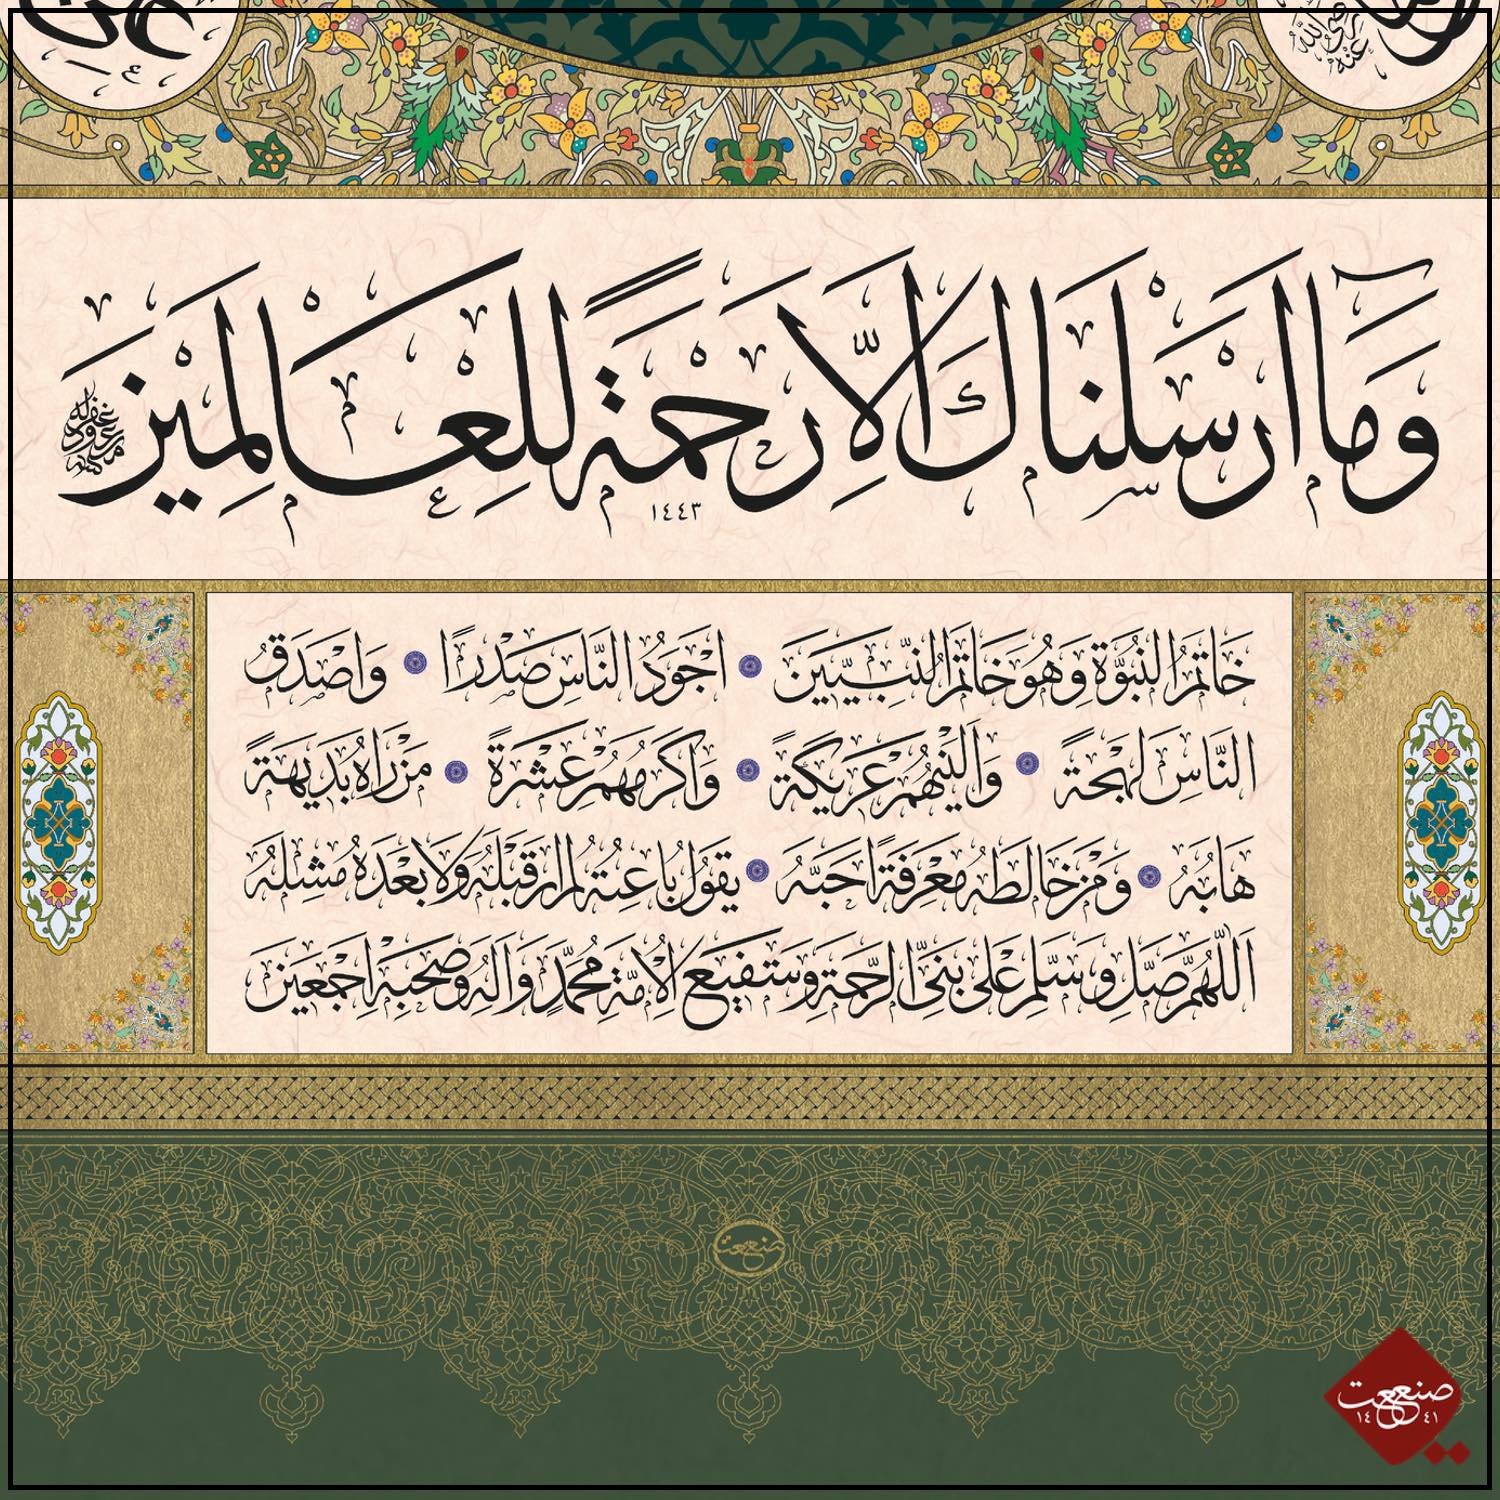 رضي الله عنه
وَمَآ اَرْسَلْنَاكَ اِلَّا رَحْمَةً لِلْعَالَمِينَ
١٤٤٣
خَاتَمُ النُّبُوَّةِ وَهُوَ خَاتَمُ النَّبِيِّينَ اَجْوَدُ النَّاسِ صَدْرًا وَاَصْدَقُ
النَّاسِ لَهْجَةً وَاَلْيَنُهُمْ عَرِيكَةً وَاَكْرَمُهُمْ عِشْرَةً مَنْ رَاٰهُ بَدِيهَةً
هَابَهُ وَمَنْ خَالَطَهُ مَعْرِفَةً اَحَبَّهُ يَقُولُ نَاعِتُهُ لَمْ اَرَ قَبْلَهُ وَلَا بَعْدَهُ مِثْلَهُ
اَللّٰهُمَّ صَلِّ وَسَلِّمْ عَلٰى نَبِيِّ الرَّحْمَةِ وَشَفِيعِ الْاُمَّةِ مُحَمَّدٍ وَاٰلِهِ وَصَحْبِهِ اَجْمَعِينَ
صنعت
صنعت
١٤٤١